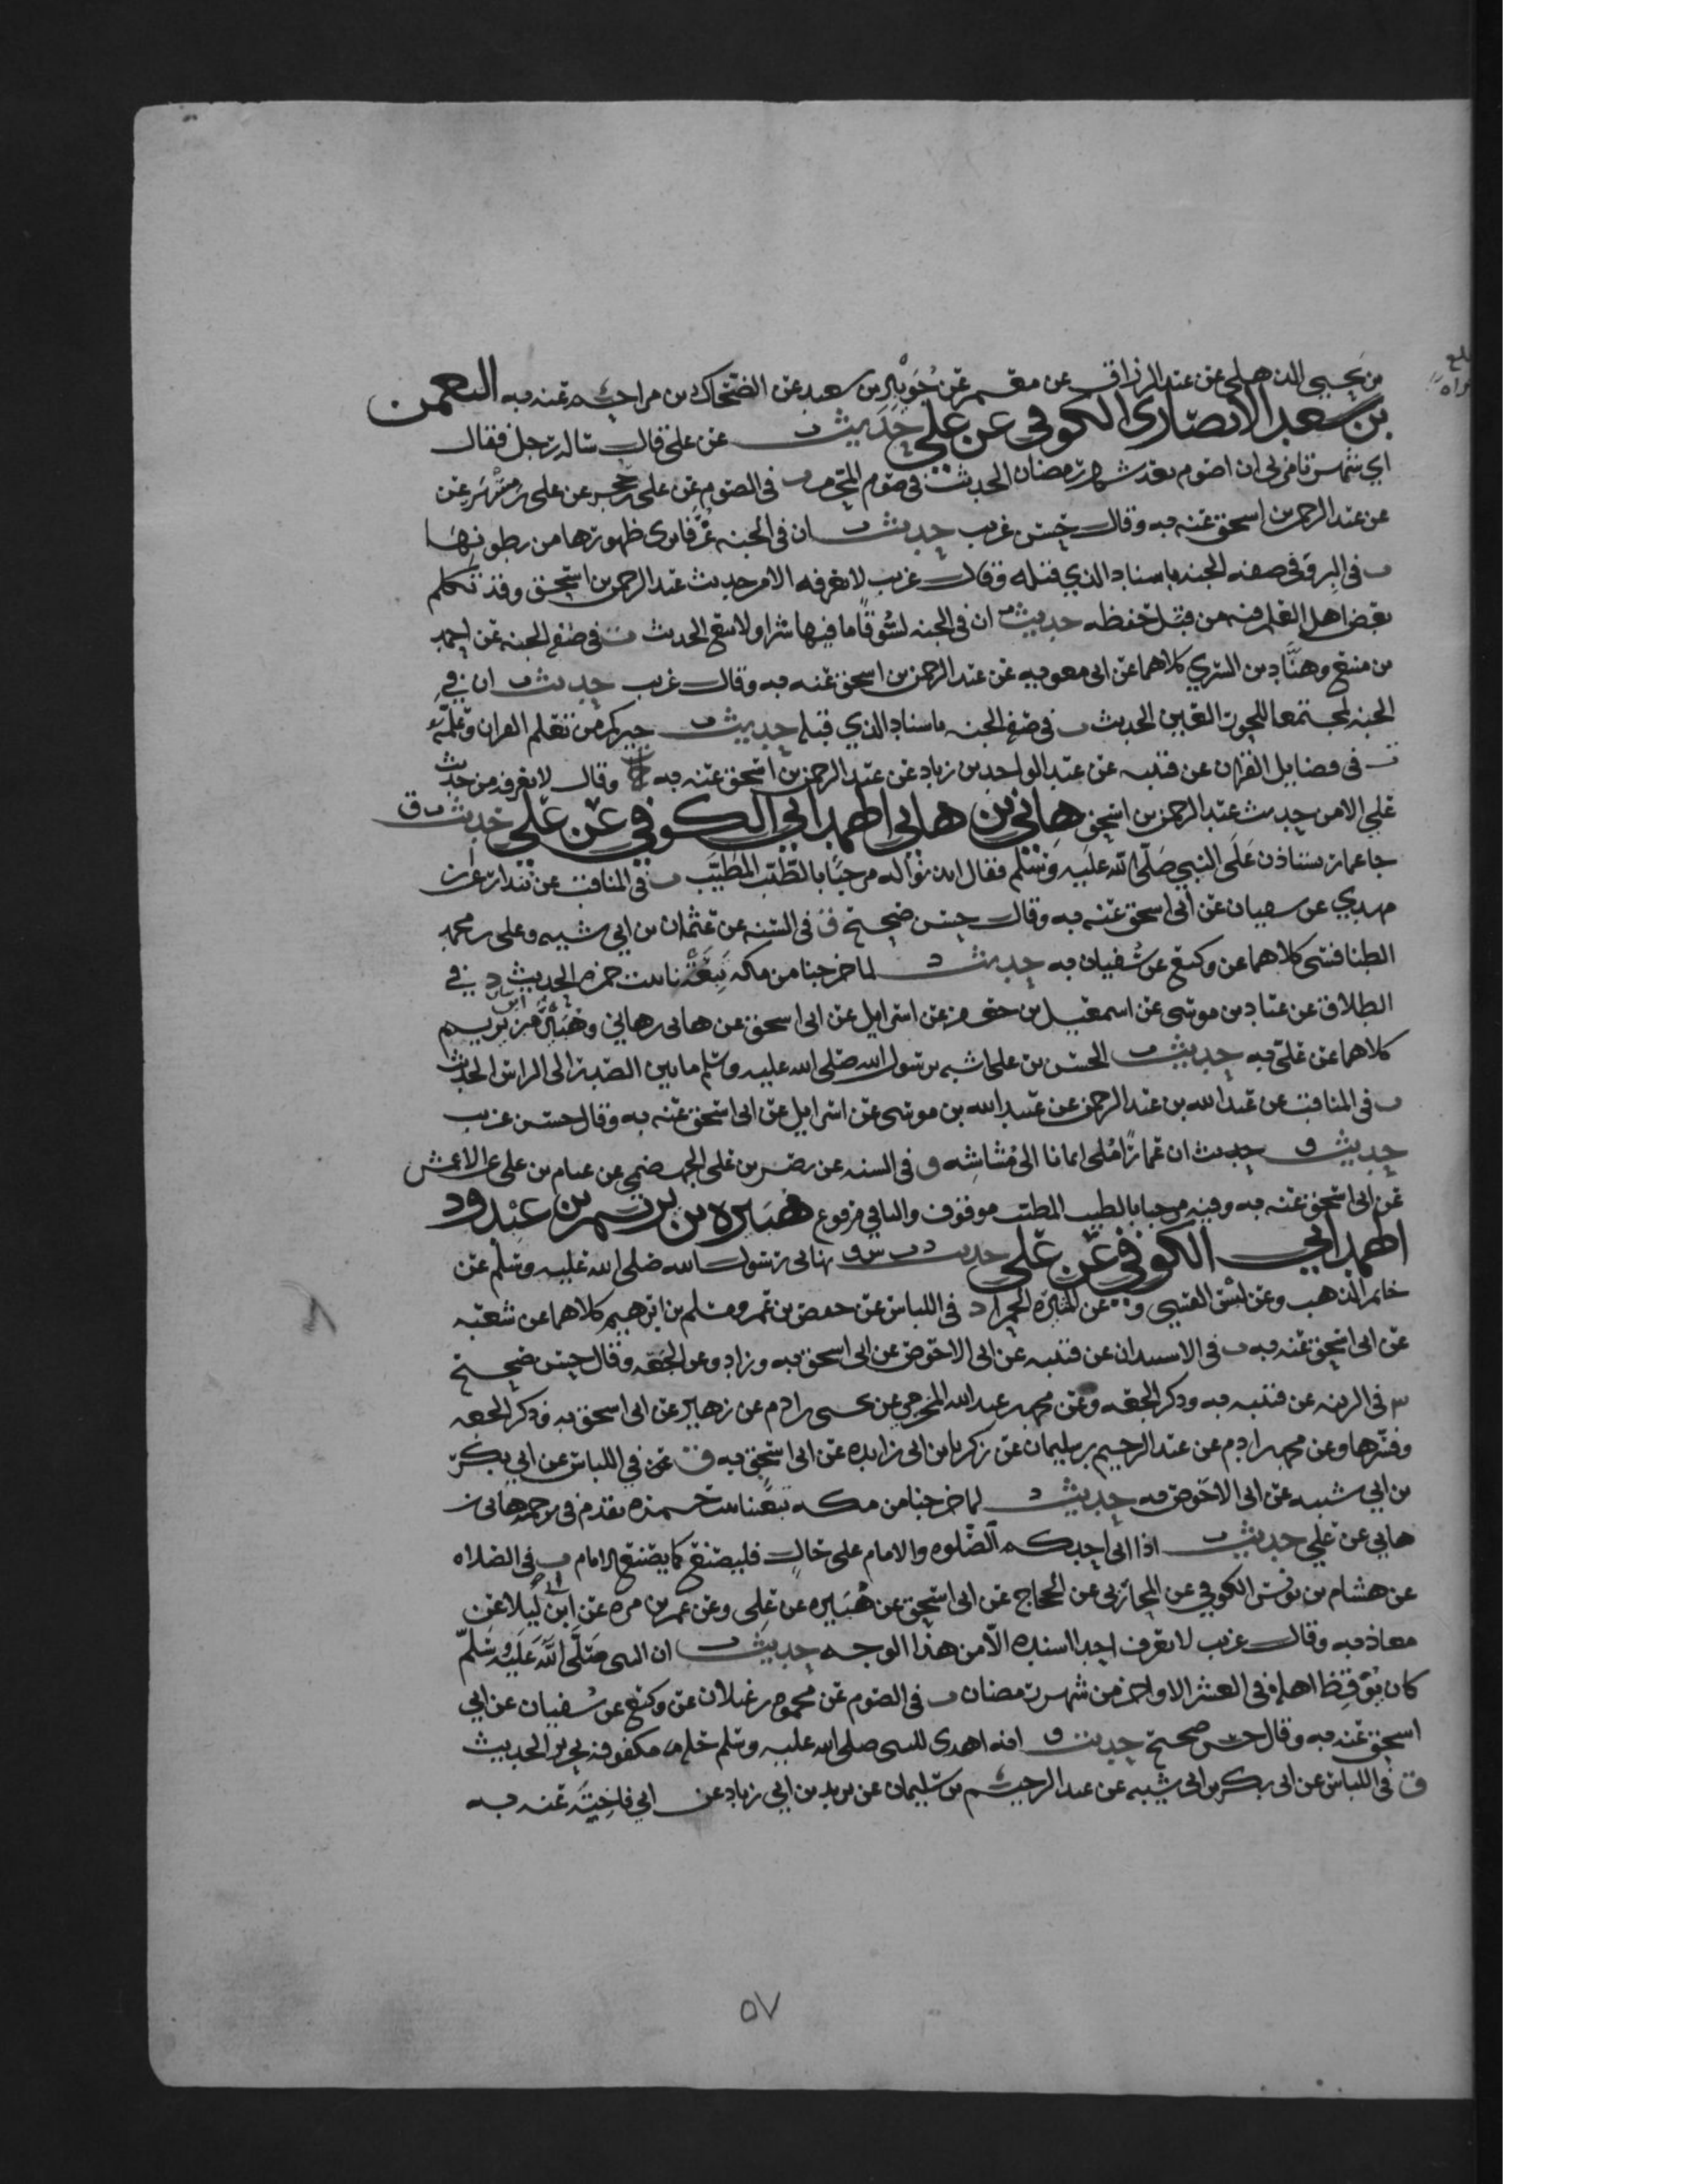 بن يحيى الذهلي عن عبد الرزاق عن معمر عن جويبر بن سعيد عن الضحاك بن مزاحم عنه به النعمن
بن سعد الانصاري الكوفي عن علي حديث ت عن علي قال ساله رجل فقال
اي شهر تامرني ان اصوم بعد شهر رمضان الحديث في صوم المحرم ت في الصوم عن علي بن حجر عن علي بن مسهر عن
عن عبد الرحمن بن اسحق عنه به وقال حسن غريب حديث ت ان في الجنه غرفا يرى ظهورها من بطونها
ت في البر وفي صفه الجنه باسناد الذي قبله وقال غريب لا نعرفه الا من حديث عبد الرحمن بن اسحق وقد تكلم
بعض اهل العلم فيه من قبل حفظه حديث ت ان في الجنه لسوقا ما فيها شرا ولا بيع الحديث ت في صفه الجنه عن احمد
بن منيع وهناد بن السري كلاهما عن ابي معويه عن عبد الرحمن بن اسحق عنه به وقال غريب حديث ت ان في
الجنه لمجتمعا للحور العين الحديث ت في صفه الجنه باسناد الذي قبله حديث ت خيركم من تعلم القران وعلمه
ت في فضايل القران عن قتيبه عن عبد الواحد بن زياد عن عبد الرحمن بن اسحق عنه به وقال لا نعرفه من حديث
علي الا من حديث عبد الرحمن بن اسحق هاني بن هاني الهمداني الكوفي عن علي حديث ت ق
جا عمار يستاذن على النبي صلى الله عليه وسلم فقال ايذنوا له مرحبا بالطيب المطيب ت في المناقب عن بندار عن ابن
مهدي عن سفيان عن ابي اسحق عنه به وقال حسن صحيح ق في السنه عن عثمان بن ابي شيبه وعلي بن محمد
الطنافسي كلاهما عن وكيع عن سفيان به حديث د لما خرجنا من مكه تبعتنا بنت حمزه الحديث د في
الطلاق عن عباد بن موسى عن اسمعيل بن جعفر عن اسرايل عن ابي اسحق عن هاني بن هاني وهبيره بن يريم
كلاهما عن علي به حديث ت الحسن بن علي اشبه برسول الله صلى الله عليه وسلم ما بين الصدر الى الراس الحديث
ت في المناقب عن عبد الله بن عبد الرحمن عن عبيد الله بن موسى عن اسرايل عن ابي اسحق عنه به وقال حسن غريب
حديث ق حديث ان عمارا ملى ايمانا الى مشاشه ق في السنه عن نصر بن علي الجهضمي عن عثام بن علي عن الاعمش
عن ابي اسحق عنه به وفيه مرحبا بالطيب المطيب موقوف والباقي مرفوع هبيره بن يريم بن عبدود
الهمداني الكوفي عن علي حديث د ت س ق نهاني رسول الله صلى الله عليه وسلم عن
خاتم الذهب وعن لبس القسي وعن الميثره الحمرا د في اللباس عن حفص بن عمر ومسلم بن ابرهيم كلاهما عن شعبه
عن ابي اسحق عنه به ت في الاستيذان عن قتيبه عن ابي الاحوص عن ابي اسحق به وزاد وعن الجعه وقال حسن صحيح
س في الزينه عن قتيبه به وذكر الجعه وعن محمد بن عبد الله المخرمي عن يحيى بن ادم عن زهير عن ابي اسحق به وذكر الجعه
وفسرها وعن محمد بن ادم عن عبد الرحيم بن سليمان عن زكريا بن ابي زايده عن ابي اسحق به ق في اللباس عن ابي بكر
بن ابي شيبه عن ابي الاحوص به حديث د لما خرجنا من مكه تبعتنا بنت حمزه تقدم في ترجمه هاني بن
هاني عن علي حديث ت اذا اتى احدكم الصلوه والامام على حال فليصنع كما يصنع الامام ت في الصلاه
عن هشام بن يونس الكوفي عن المحاربي عن الحجاج عن ابي اسحق عن هبيره عن علي وعن عمرو بن مره عن ابن ابي ليلا عن
معاذ به وقال غريب لا نعرف احدا اسنده الا من هذا الوجه حديث ت ان النبي صلى الله عليه وسلم
كان يوقظ اهله في العشر الاواخر من شهر رمضان ت في الصوم عن محمود بن غيلان عن وكيع عن سفيان عن ابي
اسحق عنه به وقال حسن صحيح حديث ق انه اهدي للنبي صلى الله عليه وسلم حله مكفوفه بحرير الحديث
ق في اللباس عن ابي بكر بن ابي شيبه عن عبد الرحيم بن سليمان عن يزيد بن ابي زياد عن ابي فاخيته عنه به
٥٧